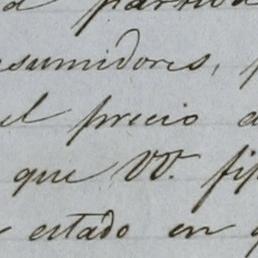 partida
sumidores,
el precio
que VV. fij
estado en